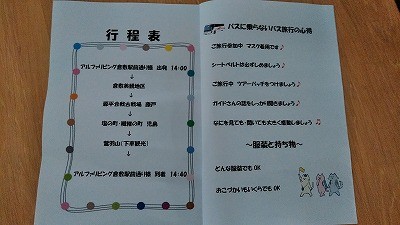 行程表
アルファリビング倉敷駅前通り様 出発 14:00
↓
倉敷美観地区
↓
源平合戦古戦場 藤戸
↓
塩の町・繊維の町 児島
↓
鷲羽山(下車観光)
↓
アルファリビング倉敷駅前通り様 到着 14:40
バスに乗らないバス旅行の心得
ご旅行参加中 マスク着用です♪
シートベルトは必ずしめましょう♪
ご旅行中 ツアーバッチをつけましょう♪
ガイドさんの話をしっかり聞きましょう♪
なにを見ても・聞いても大きく感動しましょう♫
～服装と持ち物～
どんな服装でもOK
おこづかいもいくらでもOK